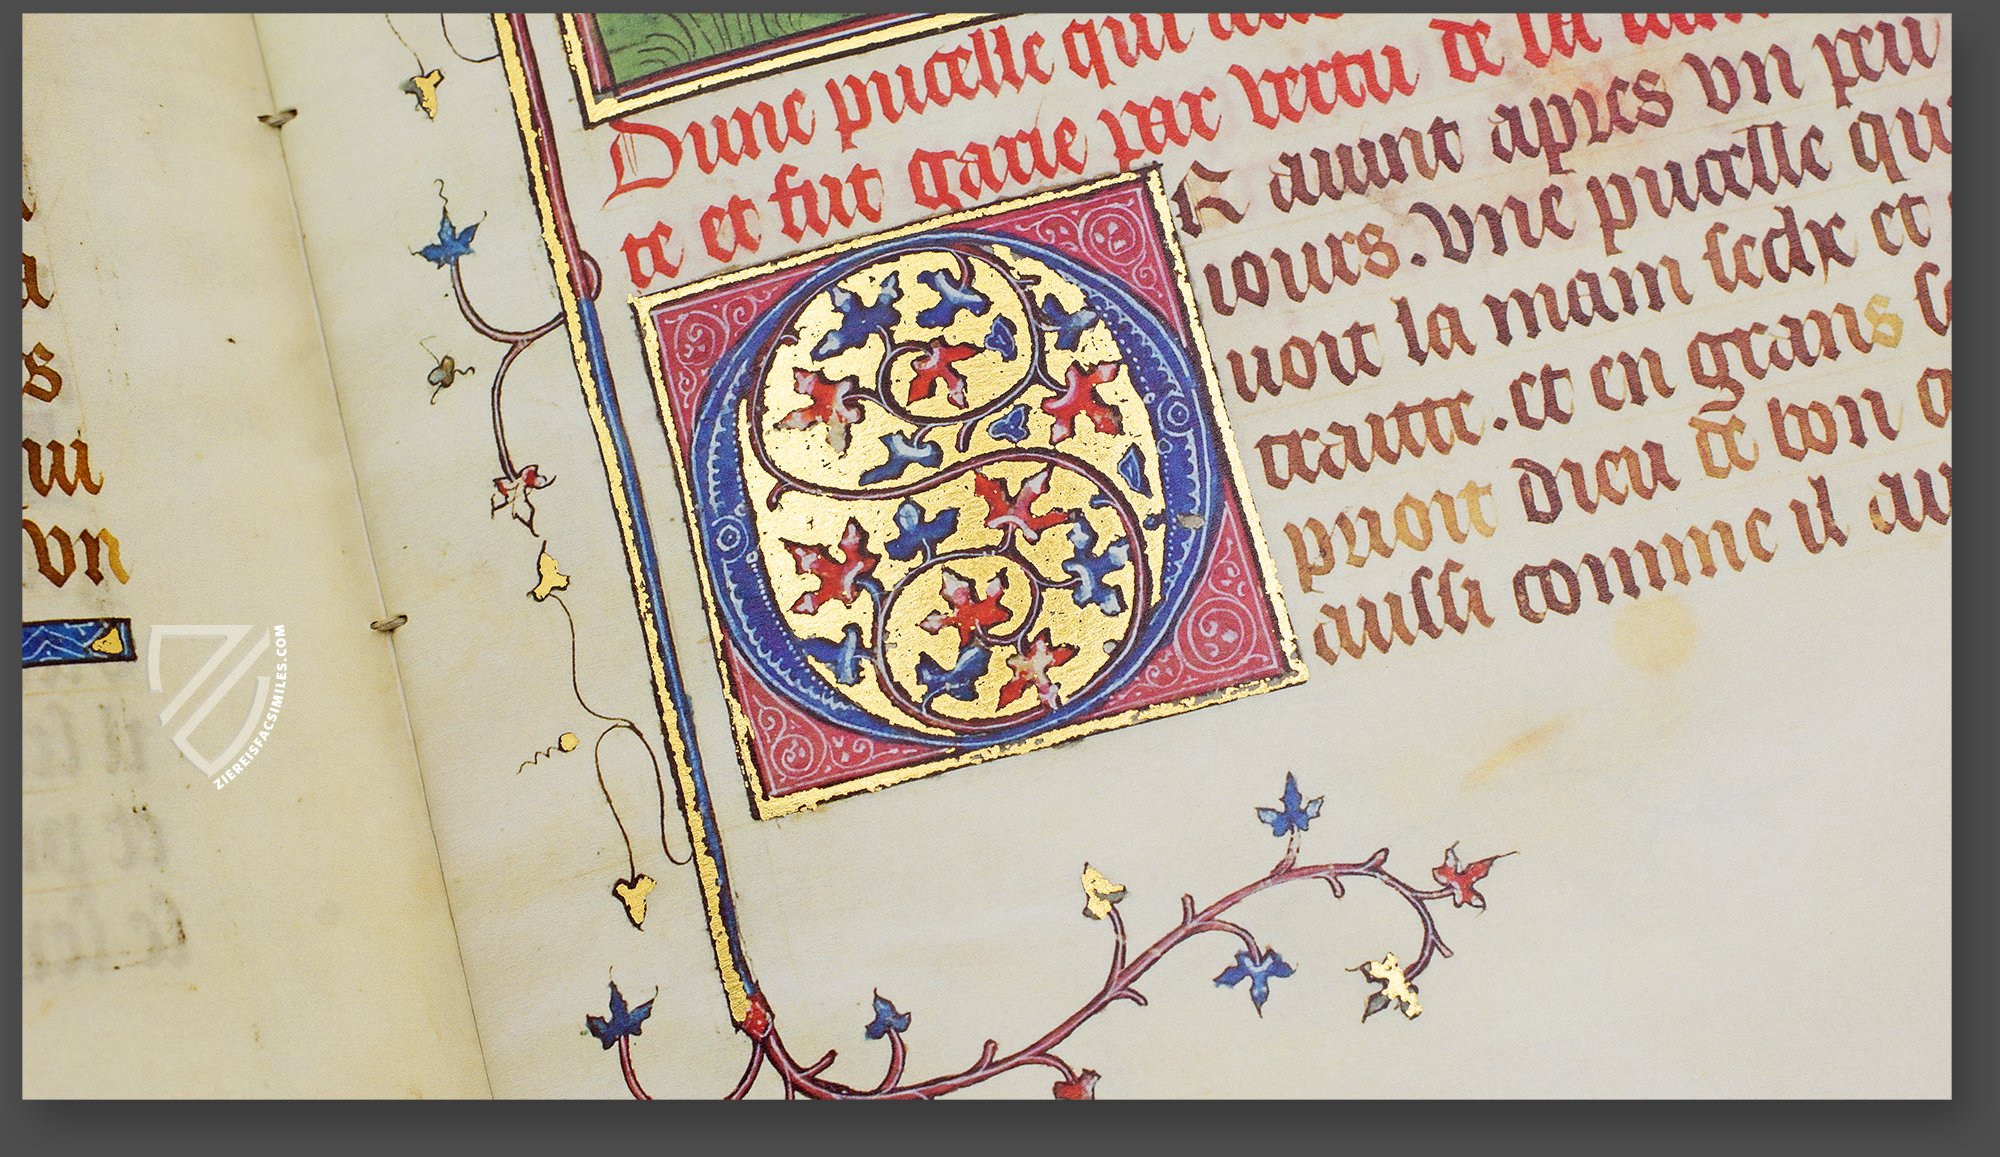 a
s
ui
vn
Dune pucelle qui
te et fut garie par vertu de la
OR auint apres vn peu
iours. vne pucelle qui
uoit la main seche et
traitte. et en grans
pooit dieu de bon
aussi comme il au
ZIEREISFACSIMILES.COM